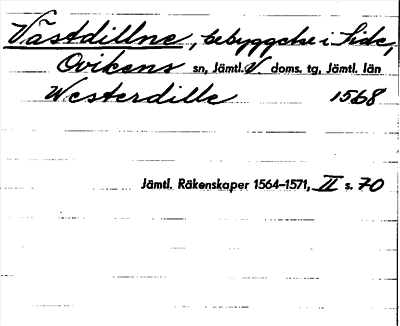 Västdillne, bebyggelse i Side,
Ovikens sn, Jämtl. V. doms. tg, Jämtl. län
Westerdille 1568
Jämtl. Räkenskaper 1564–1571, II s. 70